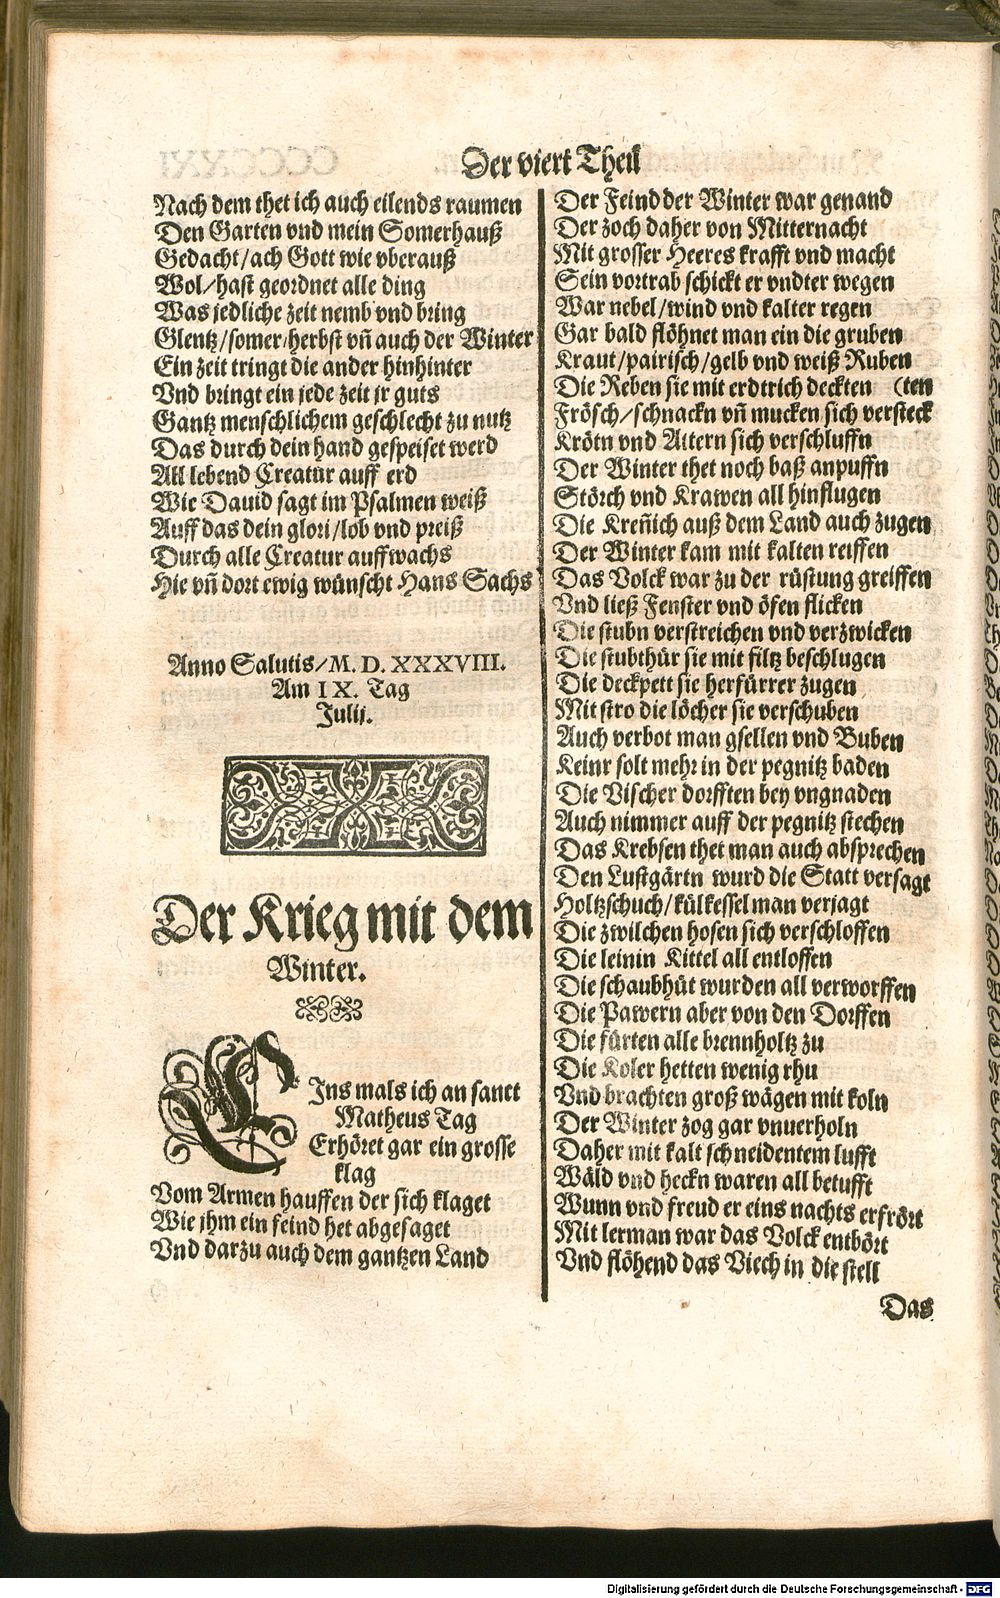 Der viert Theil
Nach dem thet ich auch eilends raumen
Den Garten vnd mein Somerhauß
Gedacht/ach Gott wie vberauß
Wol/hast geordnet alle ding
Was jedliche zeit nemb vnd bring
Glentz/somer/herbst vñ auch der Winter
Ein zeit tringt die ander hinhinter
Vnd bringt ein jede zeit jr guts
Gantz menschlichem geschlecht zu nutz
Das durch dein hand gespeiset werd
All lebend Creatur auff erd
Wie Dauid sagt im Psalmen weiß
Auff das dein glori/lob vnd preiß
Durch alle Creatur auffwachs
Hie vñ dort ewig wünscht Hans Sachs
Anno Salutis/M. D. XXXVIII.
Am IX. Tag
Julij.
Der Krieg mit dem
Winter.
EIns mals ich an sanct
Matheus Tag
Erhöret gar ein grosse
klag
Vom Armen hauffen der sich klaget
Wie jhm ein feind het abgesaget
Vnd darzu auch dem gantzen Land
Der Feind der Winter war genand
Der zoch daher von Mitternacht
Mit grosser Heeres krafft vnd macht
Sein vortrab schickt er vndter wegen
War nebel/wind vnd kalter regen
Gar bald flöhnet man ein die gruben
Kraut/pairisch/gelb vnd weiß Ruben
Die Reben sie mit erdtrich deckten (ten
Frösch/schnackn vñ mucken sich versteck
Krötn vnd Attern sich verschluffn
Der Winter thet noch baß anpuffn
Störch vnd Krawen all hinflugen
Die Kreñich auß dem Land auch zugen
Der Winter kam mit kalten reiffen
Das Volck war zu der rüstung greiffen
Vnd ließ Fenster vnd öfen flicken
Die stubn verstreichen vnd verzwicken
Die stubthür sie mit filtz beschlugen
Die deckpett sie herfürrer zugen
Mit stro die löcher sie verschuben
Auch verbot man gsellen vnd Buben
Keinr solt mehr in der pegnitz baden
Die Vischer dorfften bey vngnaden
Auch nimmer auff der pegnitz stechen
Das Krebsen thet man auch absprechen
Den Lustgärtn wurd die Statt versagt
Holtzschuch/külkessel man verjagt
Die zwilchen hosen sich verschloffen
Die leinin Kittel all entloffen
Die schaubhüt wurden all verworffen
Die Pawern aber von den Dorffen
Die fürten alle brennholtz zu
Die Koler hetten wenig rhu
Vnd brachten groß wägen mit koln
Der Winter zog gar vnuerholn
Daher mit kalt schneidentem lufft
Wäld vnd heckn waren all betufft
Wunn vnd freud er eins nachts erfrört
Mit lerman war das Volck entbört
Vnd flöhend das Viech in die stell
Das
Digitalisierung gefördert durch die Deutsche Forschungsgemeinschaft - DFG